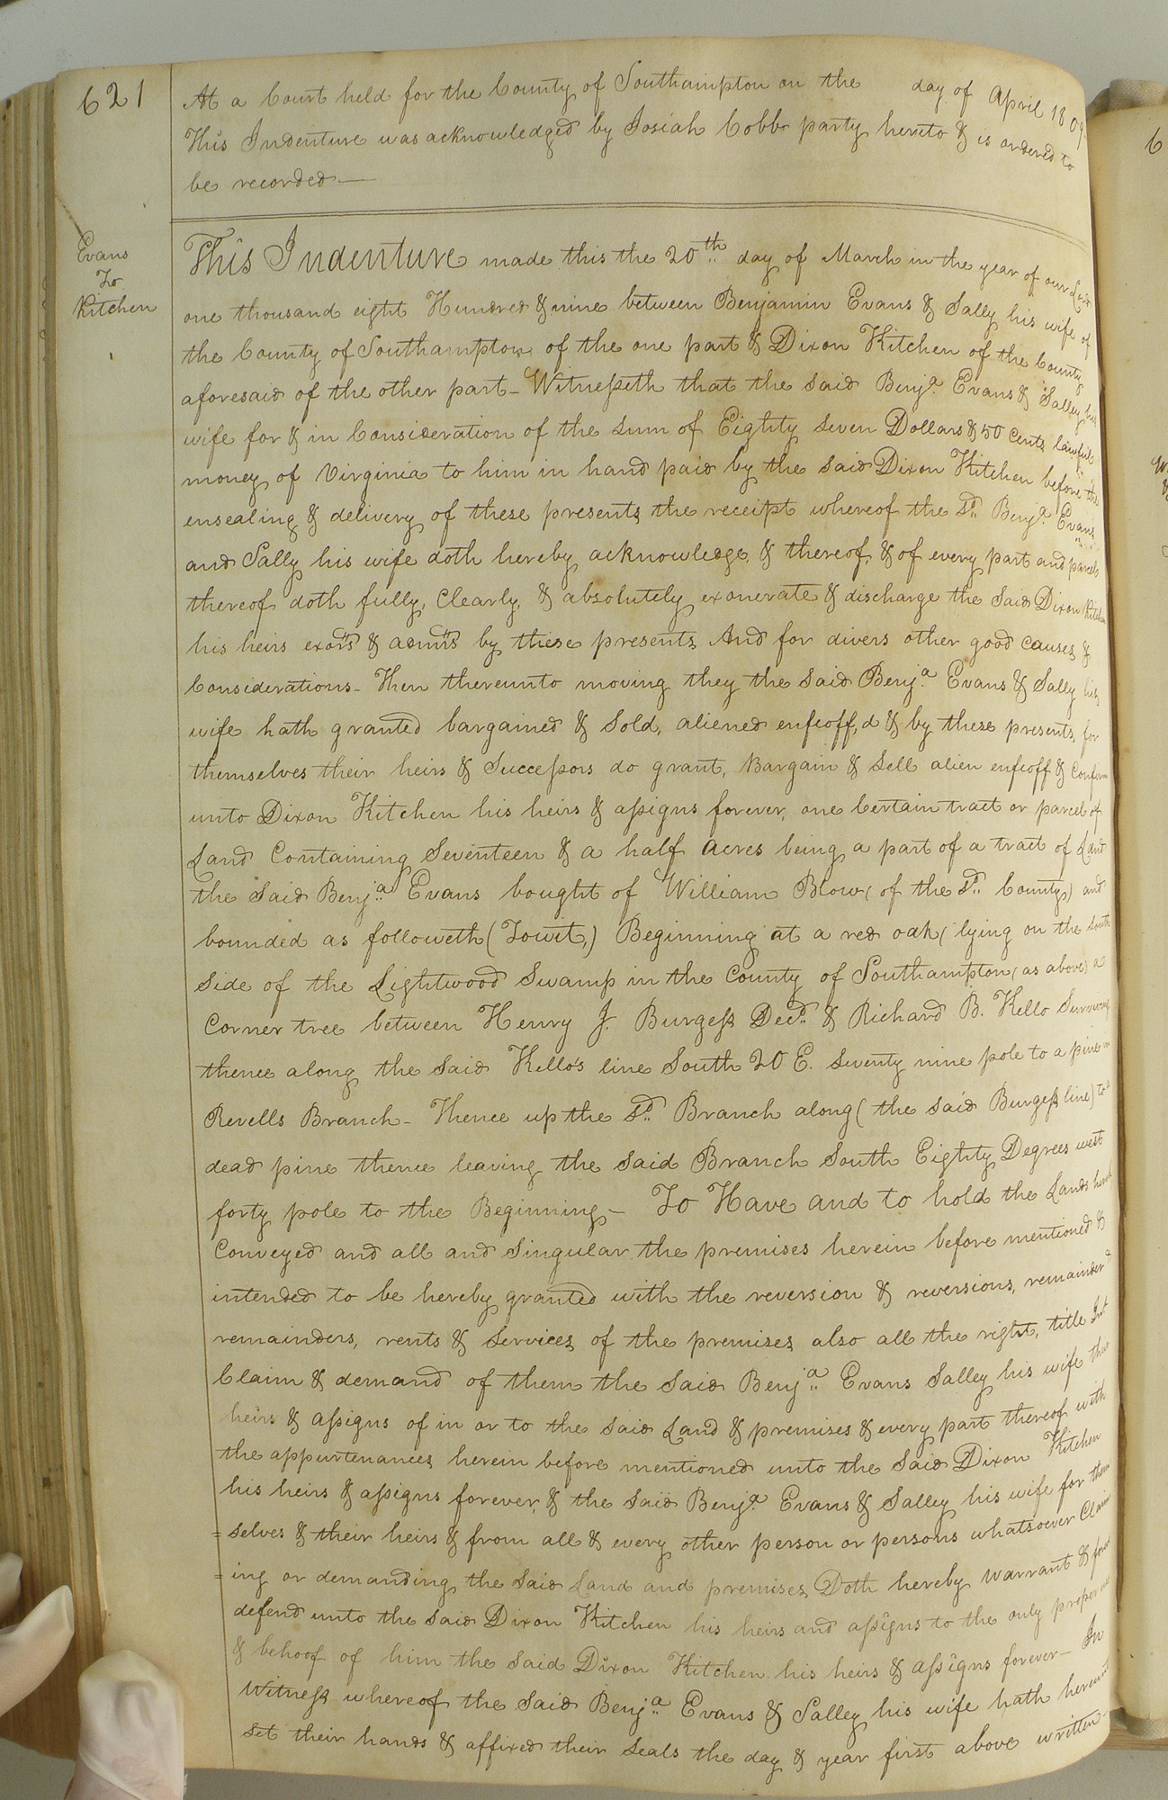 621
At a Court held for the County of Southampton on the day of April 1809
This Indenture was acknowledged by Josiah Cobb party hereto & is ordered to
be recorded —
Evans
To
Kitchen
This Indenture made this the 20th day of March in the year of our Lord
one thousand eight Hundred & nine between Benjamin Evans & Sally his wife of
the County of Southampton of the one part & Dixon Kitchen of the County
aforesaid of the other part – Witnesseth that the said Benja. Evans & Salley his
wife for & in Consideration of the sum of Eighty seven Dollars & 50 Cents lawful
money of Virginia to him in hand paid by the said Dixon Kitchen before the
ensealing & delivery of these presents the receipt whereof the sd. Benja. Evans
and Sally his wife doth hereby acknowledge & thereof, & of every part and parcel
thereof doth fully, Clearly, & absolutely exonerate & discharge the said Dixon Kitchen
his heirs exors & admrs by these presents And for divers other good causes &
Considerations – Them thereunto moving they the said Benja. Evans & Sally his
wife hath granted bargained & Sold, aliened enfeoff,d & by these presents, for
themselves their heirs & Successors do grant, Bargain & Sell alien enfeoff & Confirm
unto Dixon Kitchen his heirs & assigns forever, one Certain tract or parcel of
Land Containing Seventeen & a half acres being a part of a tract of Land
the said Benja. Evans bought of William Blow (of the sd. County) and
bounded as followeth (Towit,) Beginning at a red oak (lying on the South
side of the Lightwood Swamp in the County of Southampton (as above) a
Corner tree between Henry J. Burgess Decd. & Richard B. Kello
thence along the said Kello's line South 20 E. seventy nine pole to a pine on
Revells Branch – Thence up the sd. Branch along (the said Burgess line) to a
dead pine thence leaving the said Branch South Eighty Degrees west
forty pole to the Beginning – To Have and to hold the Lands hereby
Conveyed and all and Singular the premises herein before mentioned &
intended to be hereby granted with the reversion & reversions, remainder
remainders, rents & Services of the premises also all the right, title Int
Claim & demand of them the said Benja. Evans Salley his wife their
heirs & assigns of in or to the said Land & premises & every part thereof with
the appurtenances herein before mentioned unto the said Dixon Kitchen
his heirs & assigns forever, & the said Benja. Evans & Salley his wife for them
=selves & their heirs & from all & every other person or persons whatsoever Claim
=ing or demanding the said Land and premises, Doth hereby warrant & forever
defend unto the said Dixon Kitchen his heirs and assigns to the only proper use
& behoof of him the said Dixon Kitchen his heirs & assigns forever – In
Witness whereof the said Benja. Evans & Salley his wife hath hereunto
set their hands & affixed their seals the day & year first above written